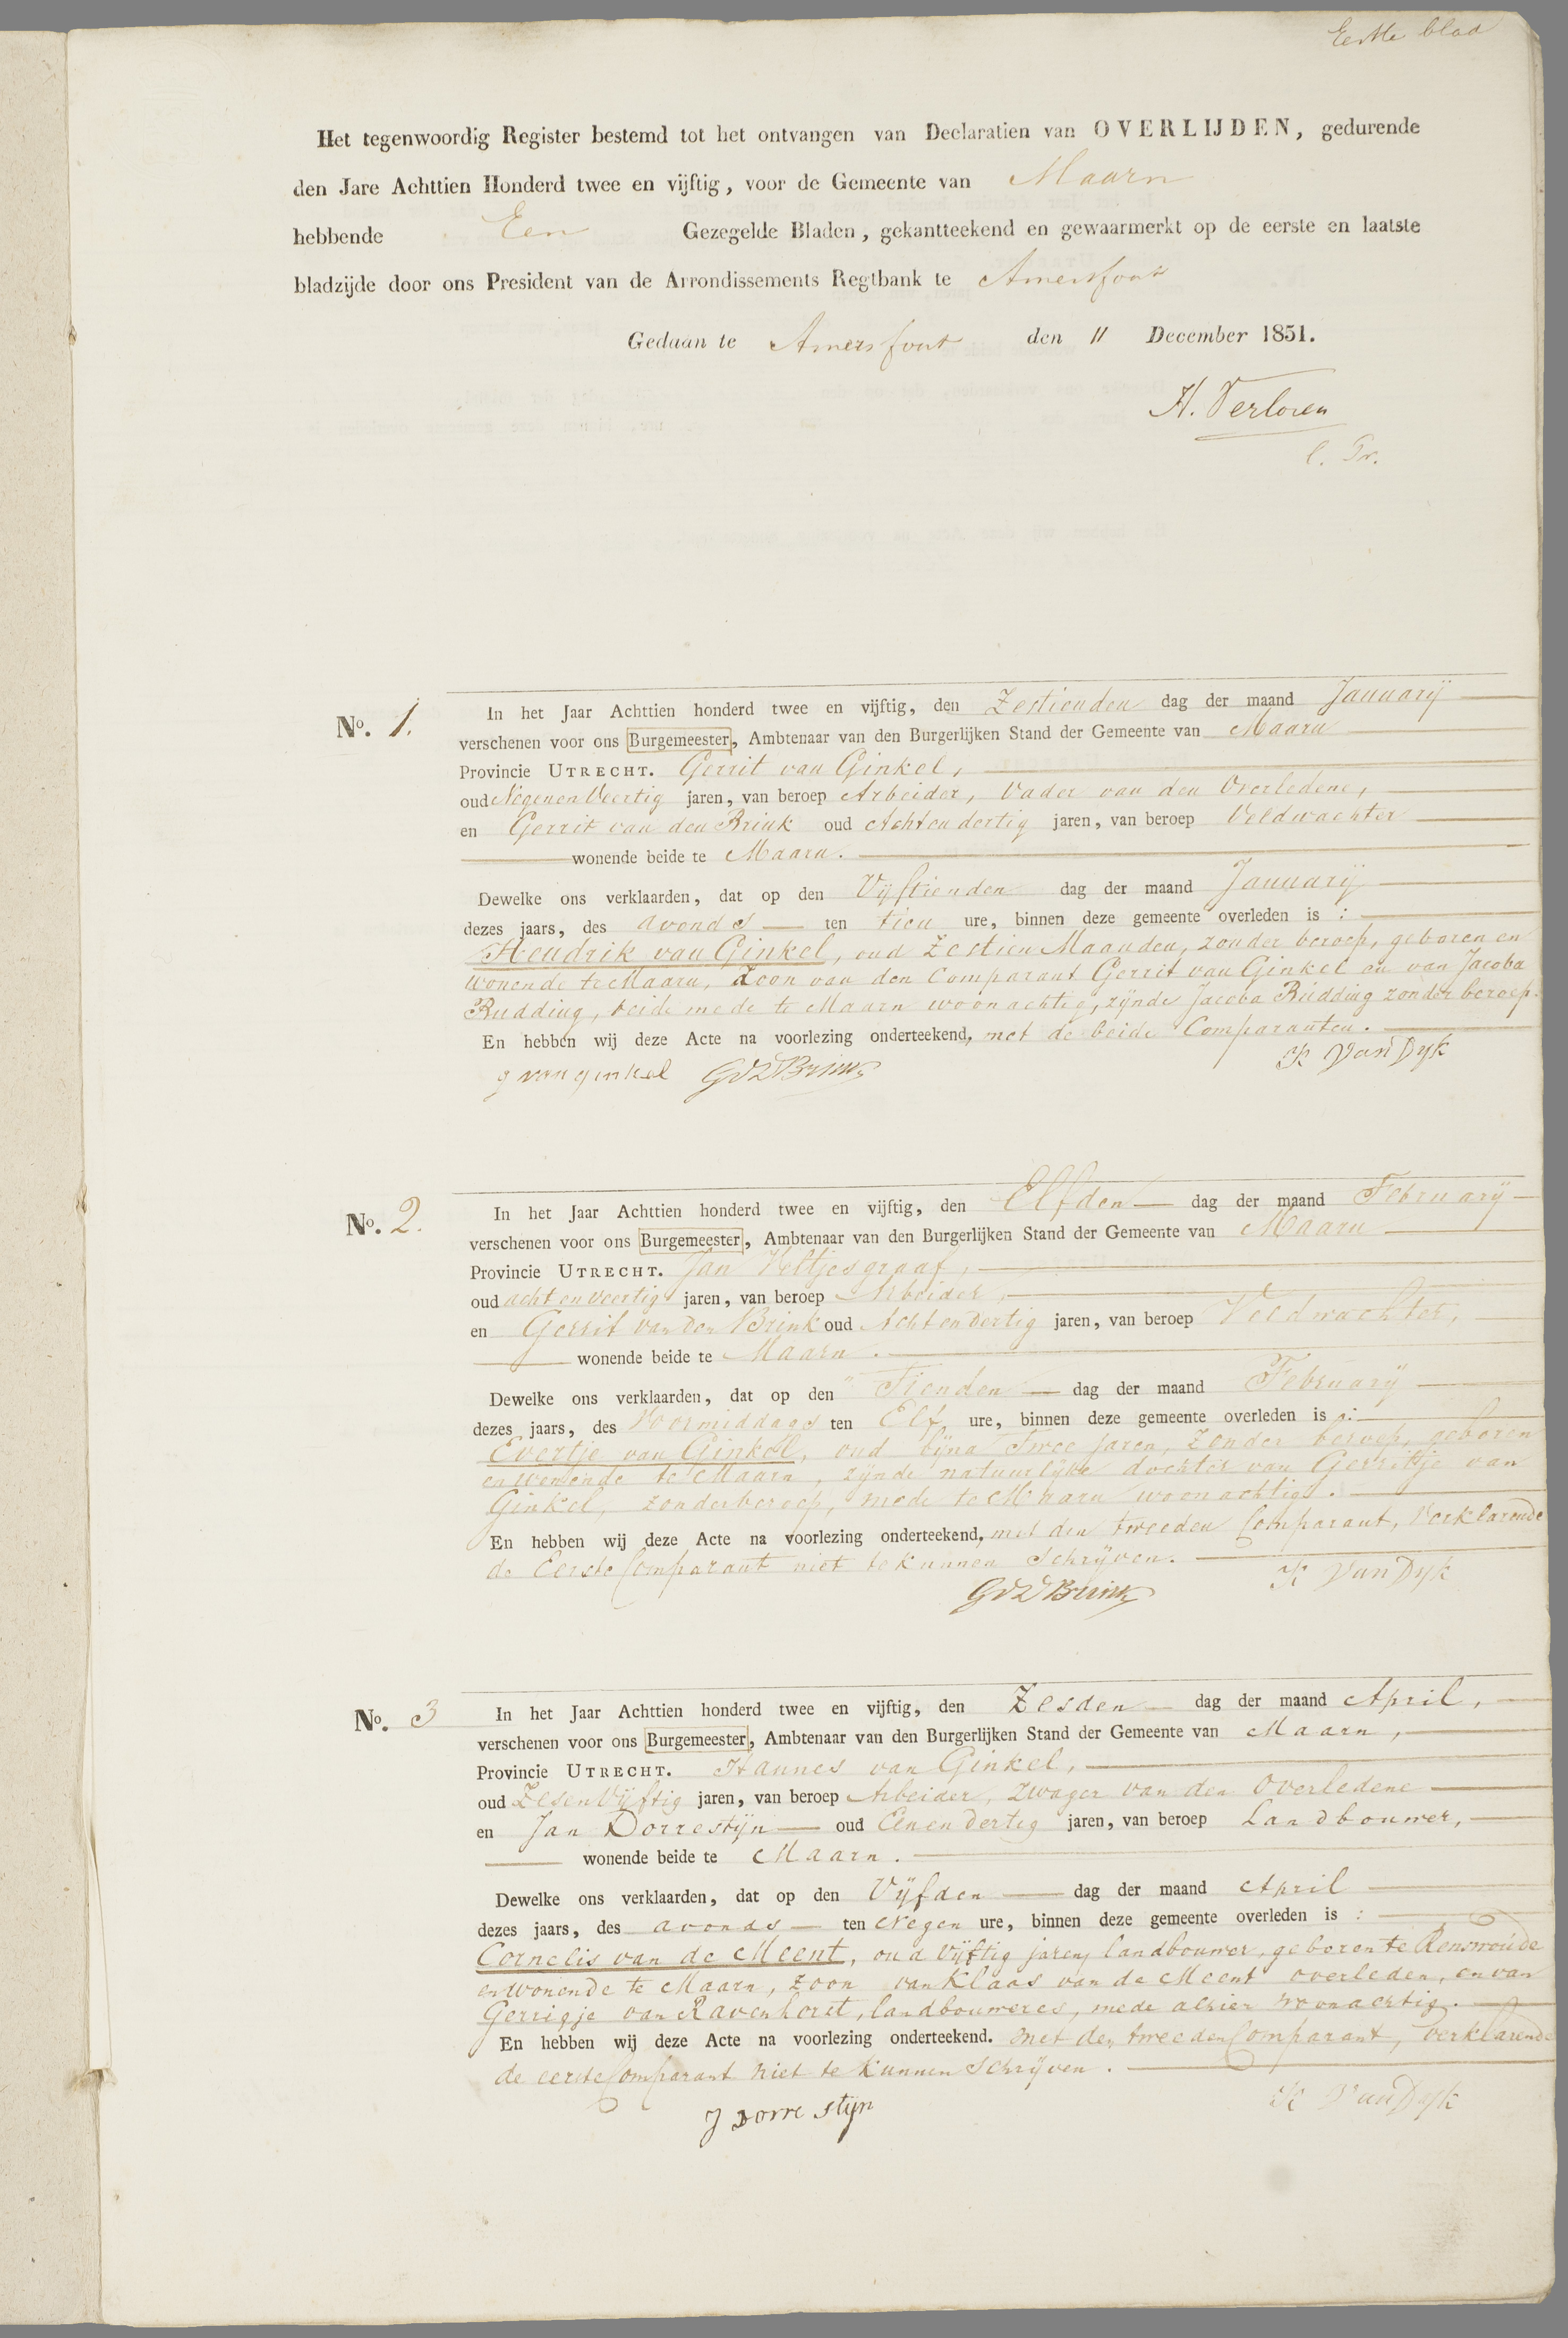 Eerste blad
Het tegenwoordig Register bestemd tot het ontvangen van Declaratien van OVERLIJDEN, gedurende
den Jare Achttien Honderd twee en vijftig, voor de Gemeente van Maarn
hebbende Een Gezegelde Bladen, gekantteekend en gewaarmerkt op de eerste en laatste
bladzijde door ons President van de Arrondissements Regtbank te Amersfoort
Gedaan te Amersfoort den 11 December 1851.
H. Verloren
No. 1. In het Jaar Achttien honderd twee en vijftig, den Zestienden dag der maand Januarij
verschenen voor ons Burgemeester, Ambtenaar van den Burgerlijken Stand der Gemeente van Maarn
Provincie UTRECHT. Gerrit van Ginkel,
oud Negenen Veertig jaren, van beroep Arbeider, Vader van den Overledene,
en Gerrit van den Brink oud Achtendertig jaren, van beroep Veldwachter
wonende beide te Maarn.
Dewelke ons verklaarden, dat op den Vijftienden dag der maand Januarij
dezes jaars, des avonds ten tien ure, binnen deze gemeente overleden is :
Hendrik van Ginkel, oud Zestien Maanden, zonder beroep, geboren en
wonende te Maarn, Zoon van den Comparant Gerrit van Ginkel en van Jacoba
Rudding, beide mede te Maarn woonachtig, zijnde Jacoba Rudding zonder beroep.
En hebben wij deze Acte na voorlezing onderteekend, met de beide Comparanten.
g van ginkel GVDBrink K Van Dyk
No. 2. In het Jaar Achttien honderd twee en vijftig, den Elfden dag der maand Februarij
verschenen voor ons Burgemeester, Ambtenaar van den Burgerlijken Stand der Gemeente van Maarn
Provincie UTRECHT. Jan Veltjesgraaf,
oud acht en veertig jaren, van beroep Arbeider,
en Gerrit van den Brink oud Acht en dertig jaren, van beroep Veldwachter,
wonende beide te Maarn.
Dewelke ons verklaarden, dat op den Tienden dag der maand Februarij
dezes jaars, des Voormiddags ten Elf ure, binnen deze gemeente overleden is :
Evertje van Ginkel, oud bijna Twee jaren, zonder beroep, geboren
en wonende te Maarn, zijnde natuurlijke dochter van Gerritje van
Ginkel, zonder beroep, mede te Maarn woonachtig.
En hebben wij deze Acte na voorlezing onderteekend, met den tweeden Comparant, Verklarende
de Eerste Comparant niet te kunnen Schrijven.
GVDBrink K Van Dyk
No. 3 In het Jaar Achttien honderd twee en vijftig, den Zesden dag der maand April,
verschenen voor ons Burgemeester, Ambtenaar van den Burgerlijken Stand der Gemeente van Maarn,
Provincie UTRECHT. Hannes van Ginkel,
oud Zesen Vijftig jaren, van beroep Arbeider, Zwager van den Overledene
en Jan Dorrestijn oud Eenen Dertig jaren, van beroep Landbouwer,
wonende beide te Maarn.
Dewelke ons verklaarden, dat op den Vijfden dag der maand April
dezes jaars, des avonds ten Negen ure, binnen deze gemeente overleden is :
Cornelis van de Meent, oud Vijftig jaren, landbouwer, geboren te Renswoude
en wonende te Maarn, zoon van Klaas van de Meent overleden, en van
Gerrigje van Ravenhorst, landbouweres, mede alhier woonachtig.
En hebben wij deze Acte na voorlezing onderteekend. met den tweeden Comparant, Verklarende
de eerste Comparant niet te kunnen Schrijven.
J Dorrestijn K Van Dyk